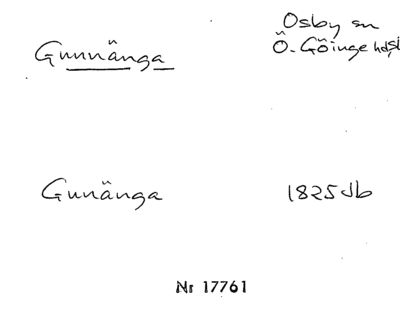 Osby sn
Gunnänga Ö. Göinge hd
Gunänga 1825 Jb
Nr 17761